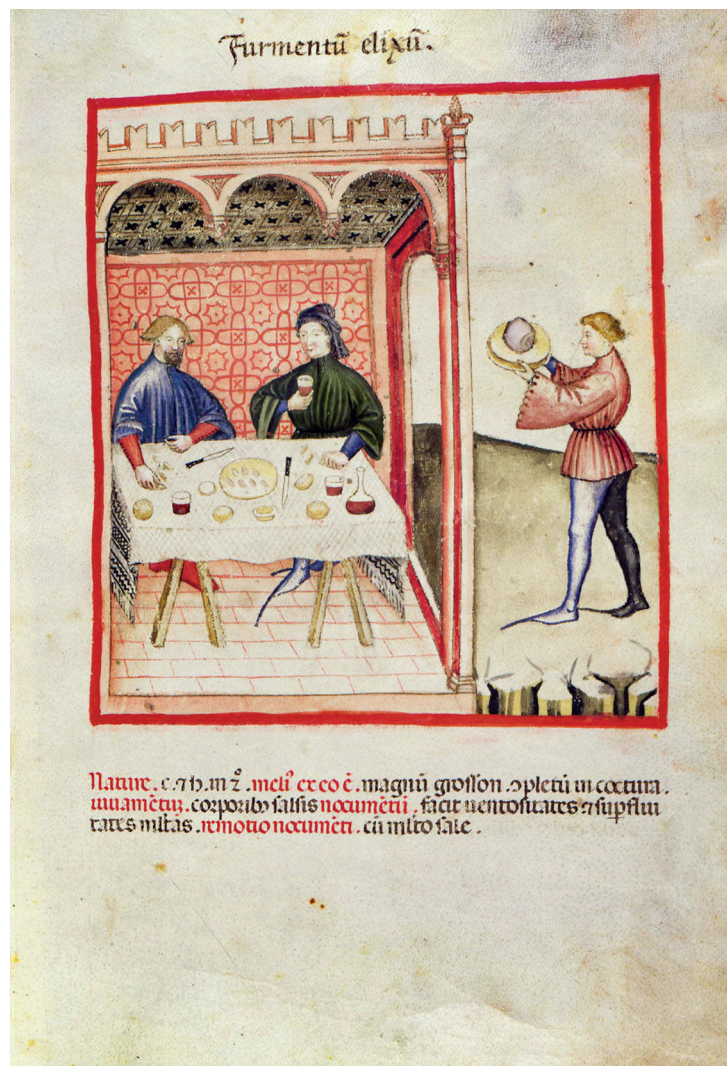 Furmentũ elixũ.
Nature. c. ⁊ h. in 2̊. meliꝰ ex eo ẽ. magnũ grossom. ↄpletũ in coctura.
iuuamẽtuʒ. corporibꝰ salsis nocumẽtũ. facit uentositates ⁊ suꝑflui
tates mltas. remotio nocumẽti. cũ mlto sale.